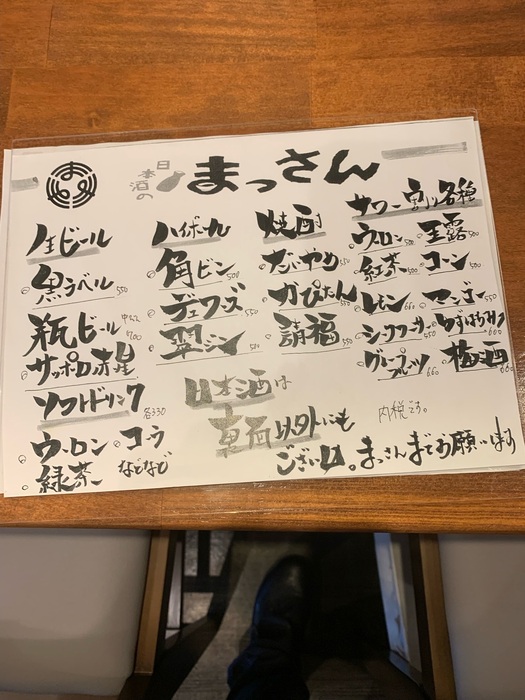 日本酒の まっさん
生ビール
黒ラベル 550
瓶ビール 中びん 700
サッポロ赤星
ソフトドリンク 各330
ウーロン コーラ
緑茶 などなど
ハイボール
角ビン 500
デュワーズ 550
翠ジン 500
焼酎
だいやめ 550
かぴたん 550
請福 550
サワー割り各種
ウーロン 500 玉露 500
紅茶 500 コーン 500
レモン 660 マンゴー 550
シークワーサー 550 ゆずはちみつ 660
グレープフルーツ 660 梅酒 660
日本酒は
裏面以外にも
ございます。まっさんまでお願いします
内税です。